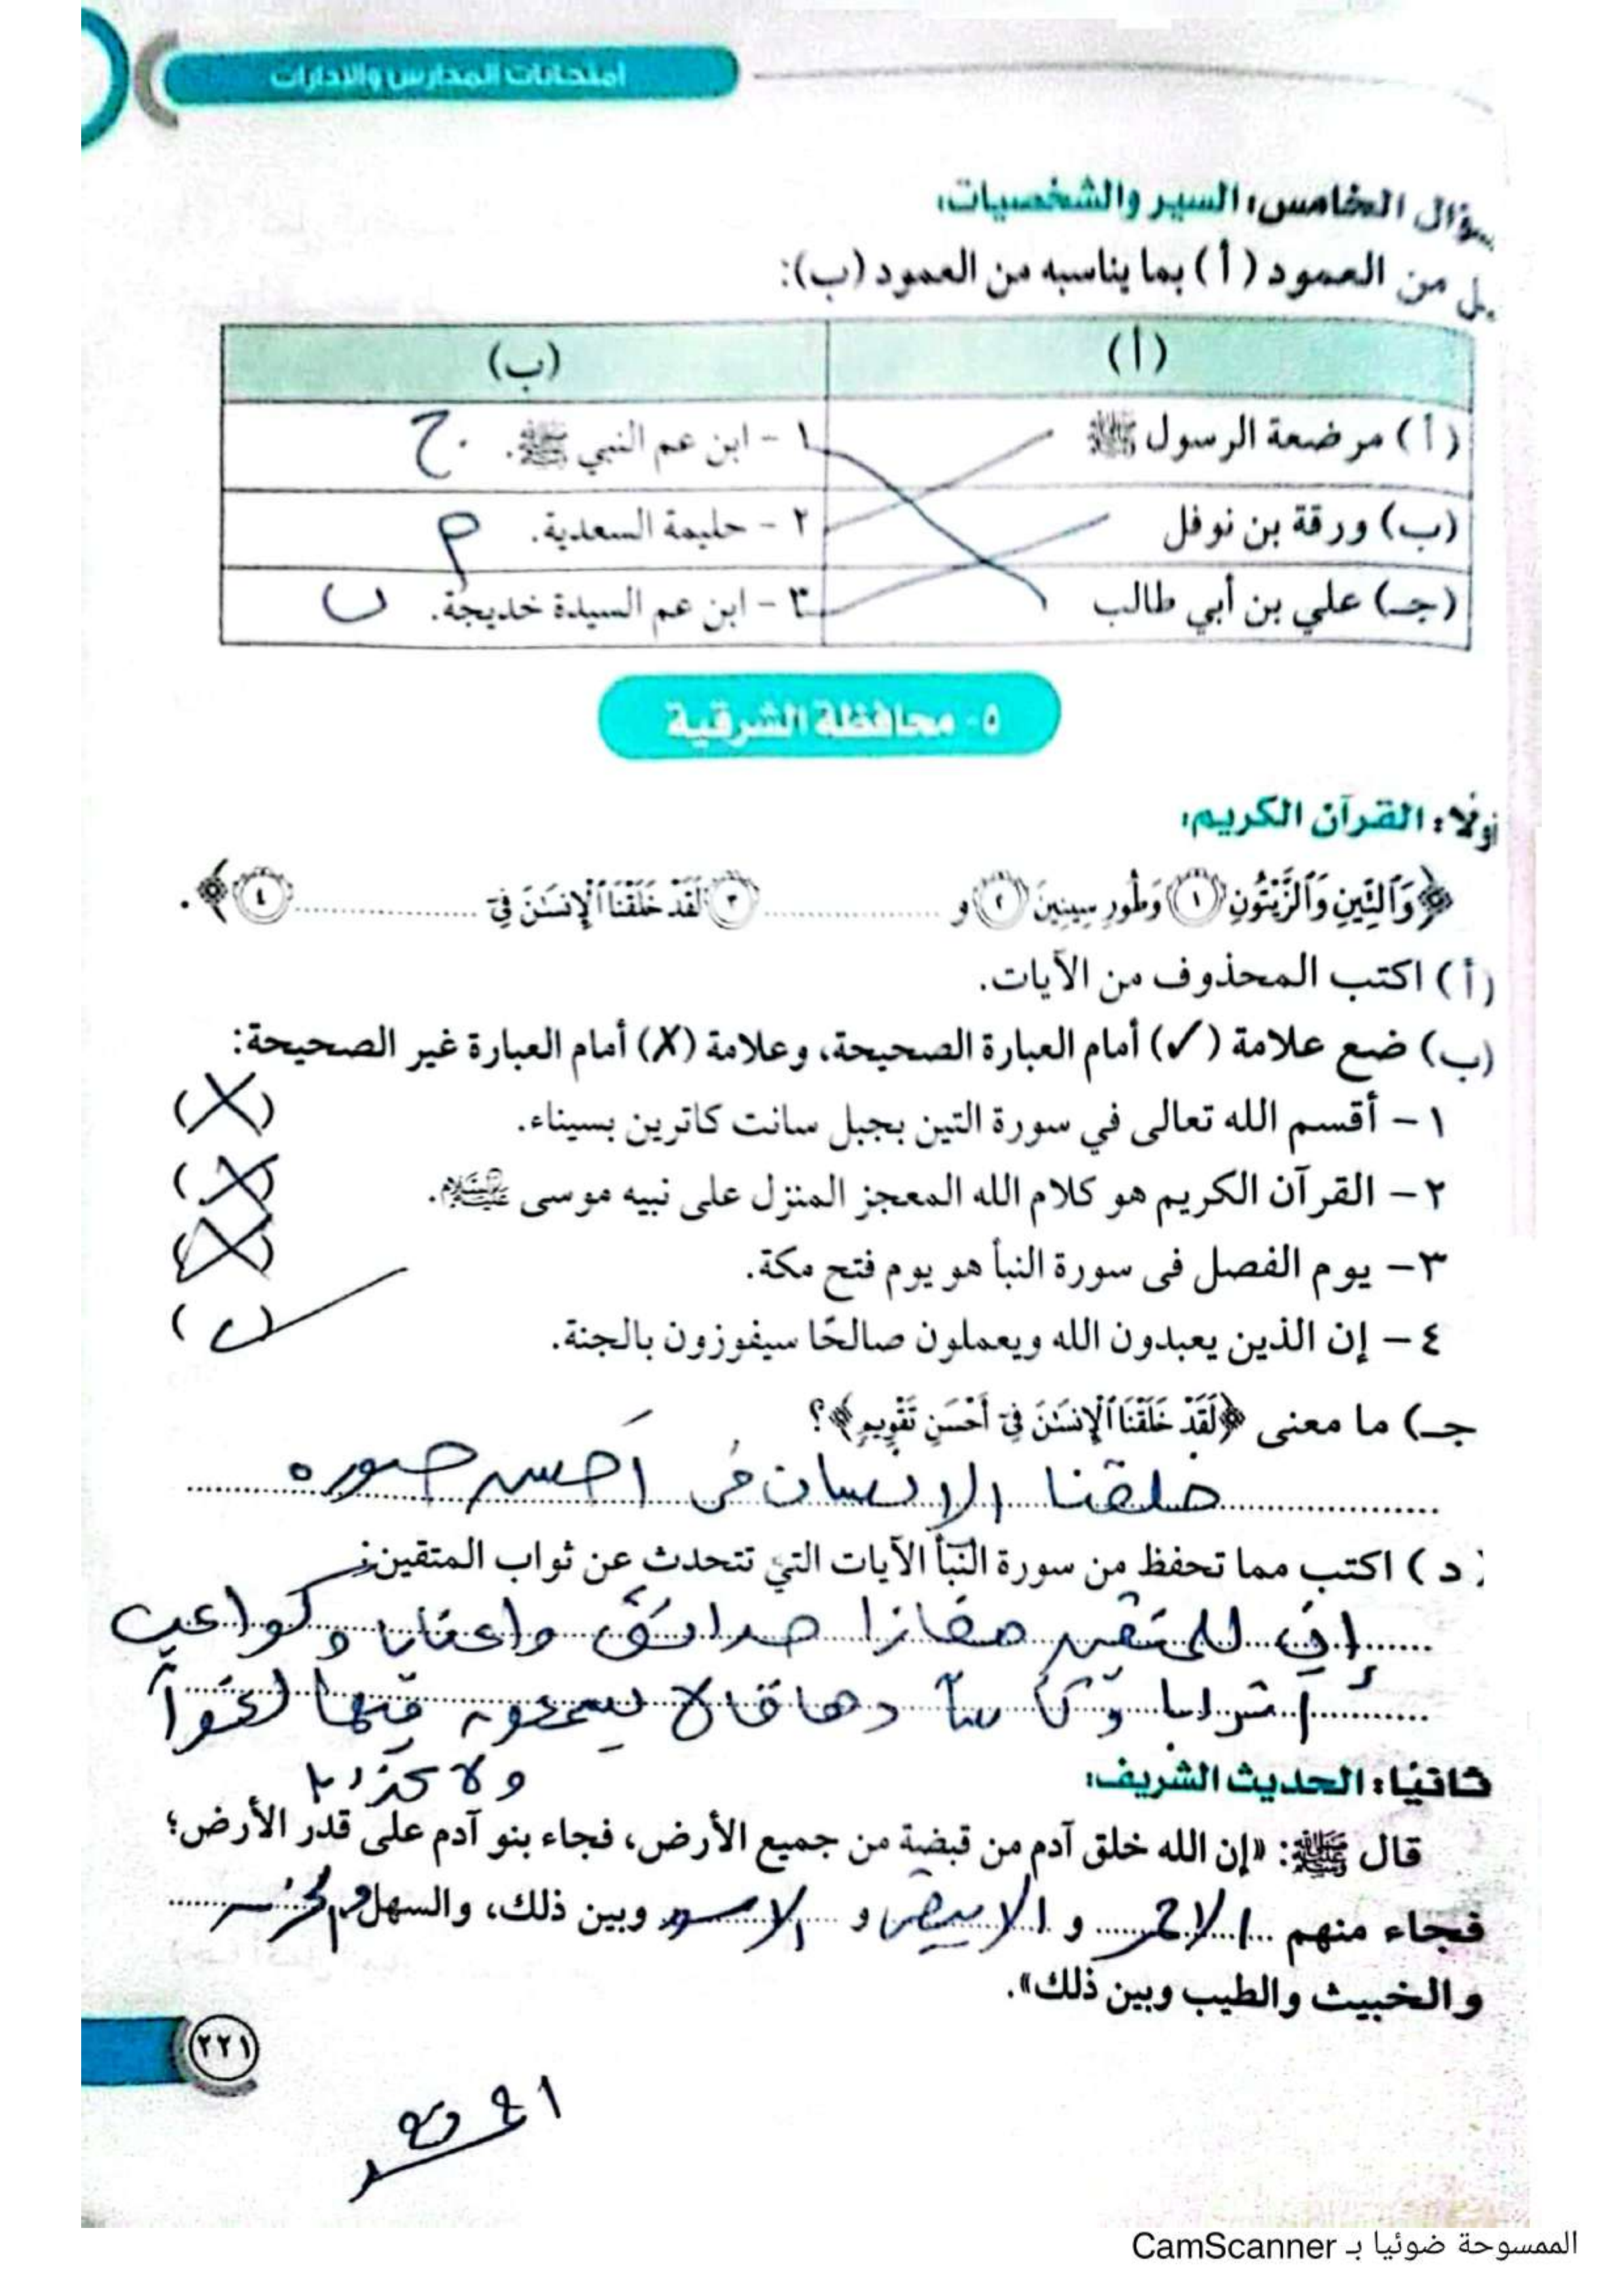 امتحانات المدارس والإدارات
سؤال الخامس: السير والشخصيات:
من العمود (أ) بما يناسبه من العمود (ب):
(أ) (ب)
(أ) مرضعة الرسول ﷺ ١ - ابن عم النبي ﷺ. ج
(ب) ورقة بن نوفل ٢ - حليمة السعدية. م
(جـ) علي بن أبي طالب ٣ - ابن عم السيدة خديجة. ب
٥ - محافظة الشرقية
أولًا: القرآن الكريم:
﴿وَٱلتِّينِ وَٱلزَّيْتُونِ (١) وَطُورِ سِينِينَ (٢) و .................... (٣) لَقَدْ خَلَقْنَا ٱلْإِنسَـٰنَ فِىٓ .................... (٤)﴾.
(أ) اكتب المحذوف من الآيات.
(ب) ضع علامة (✓) أمام العبارة الصحيحة، وعلامة (X) أمام العبارة غير الصحيحة:
١ - أقسم الله تعالى في سورة التين بجبل سانت كاترين بسيناء. (X)
٢ - القرآن الكريم هو كلام الله المعجز المنزل على نبيه موسى عليه السلام. (X)
٣ - يوم الفصل فى سورة النبأ هو يوم فتح مكة. (X)
٤ - إن الذين يعبدون الله ويعملون صالحًا سيفوزون بالجنة. (✓)
جـ) ما معنى ﴿لَقَدْ خَلَقْنَا ٱلْإِنسَـٰنَ فِىٓ أَحْسَنِ تَقْوِيمٍ﴾؟
خلقنا الانسان فى احسن صوره
(د) اكتب مما تحفظ من سورة النبأ الآيات التي تتحدث عن ثواب المتقين:
إن للمتقين مفازا حدائق واعنابا وكواعب
أترابا وكأسا دهاقا لا يسمعون فيها لغوا
ولا كذبا
ثانيًا: الحديث الشريف:
قال ﷺ: «إن الله خلق آدم من قبضة من جميع الأرض، فجاء بنو آدم على قدر الأرض؛
فجاء منهم الاحمر و الابيض و الاسود وبين ذلك، والسهل والحزن
والخبيث والطيب وبين ذلك».
٢٢١
الممسوحة ضوئيا بـ CamScanner